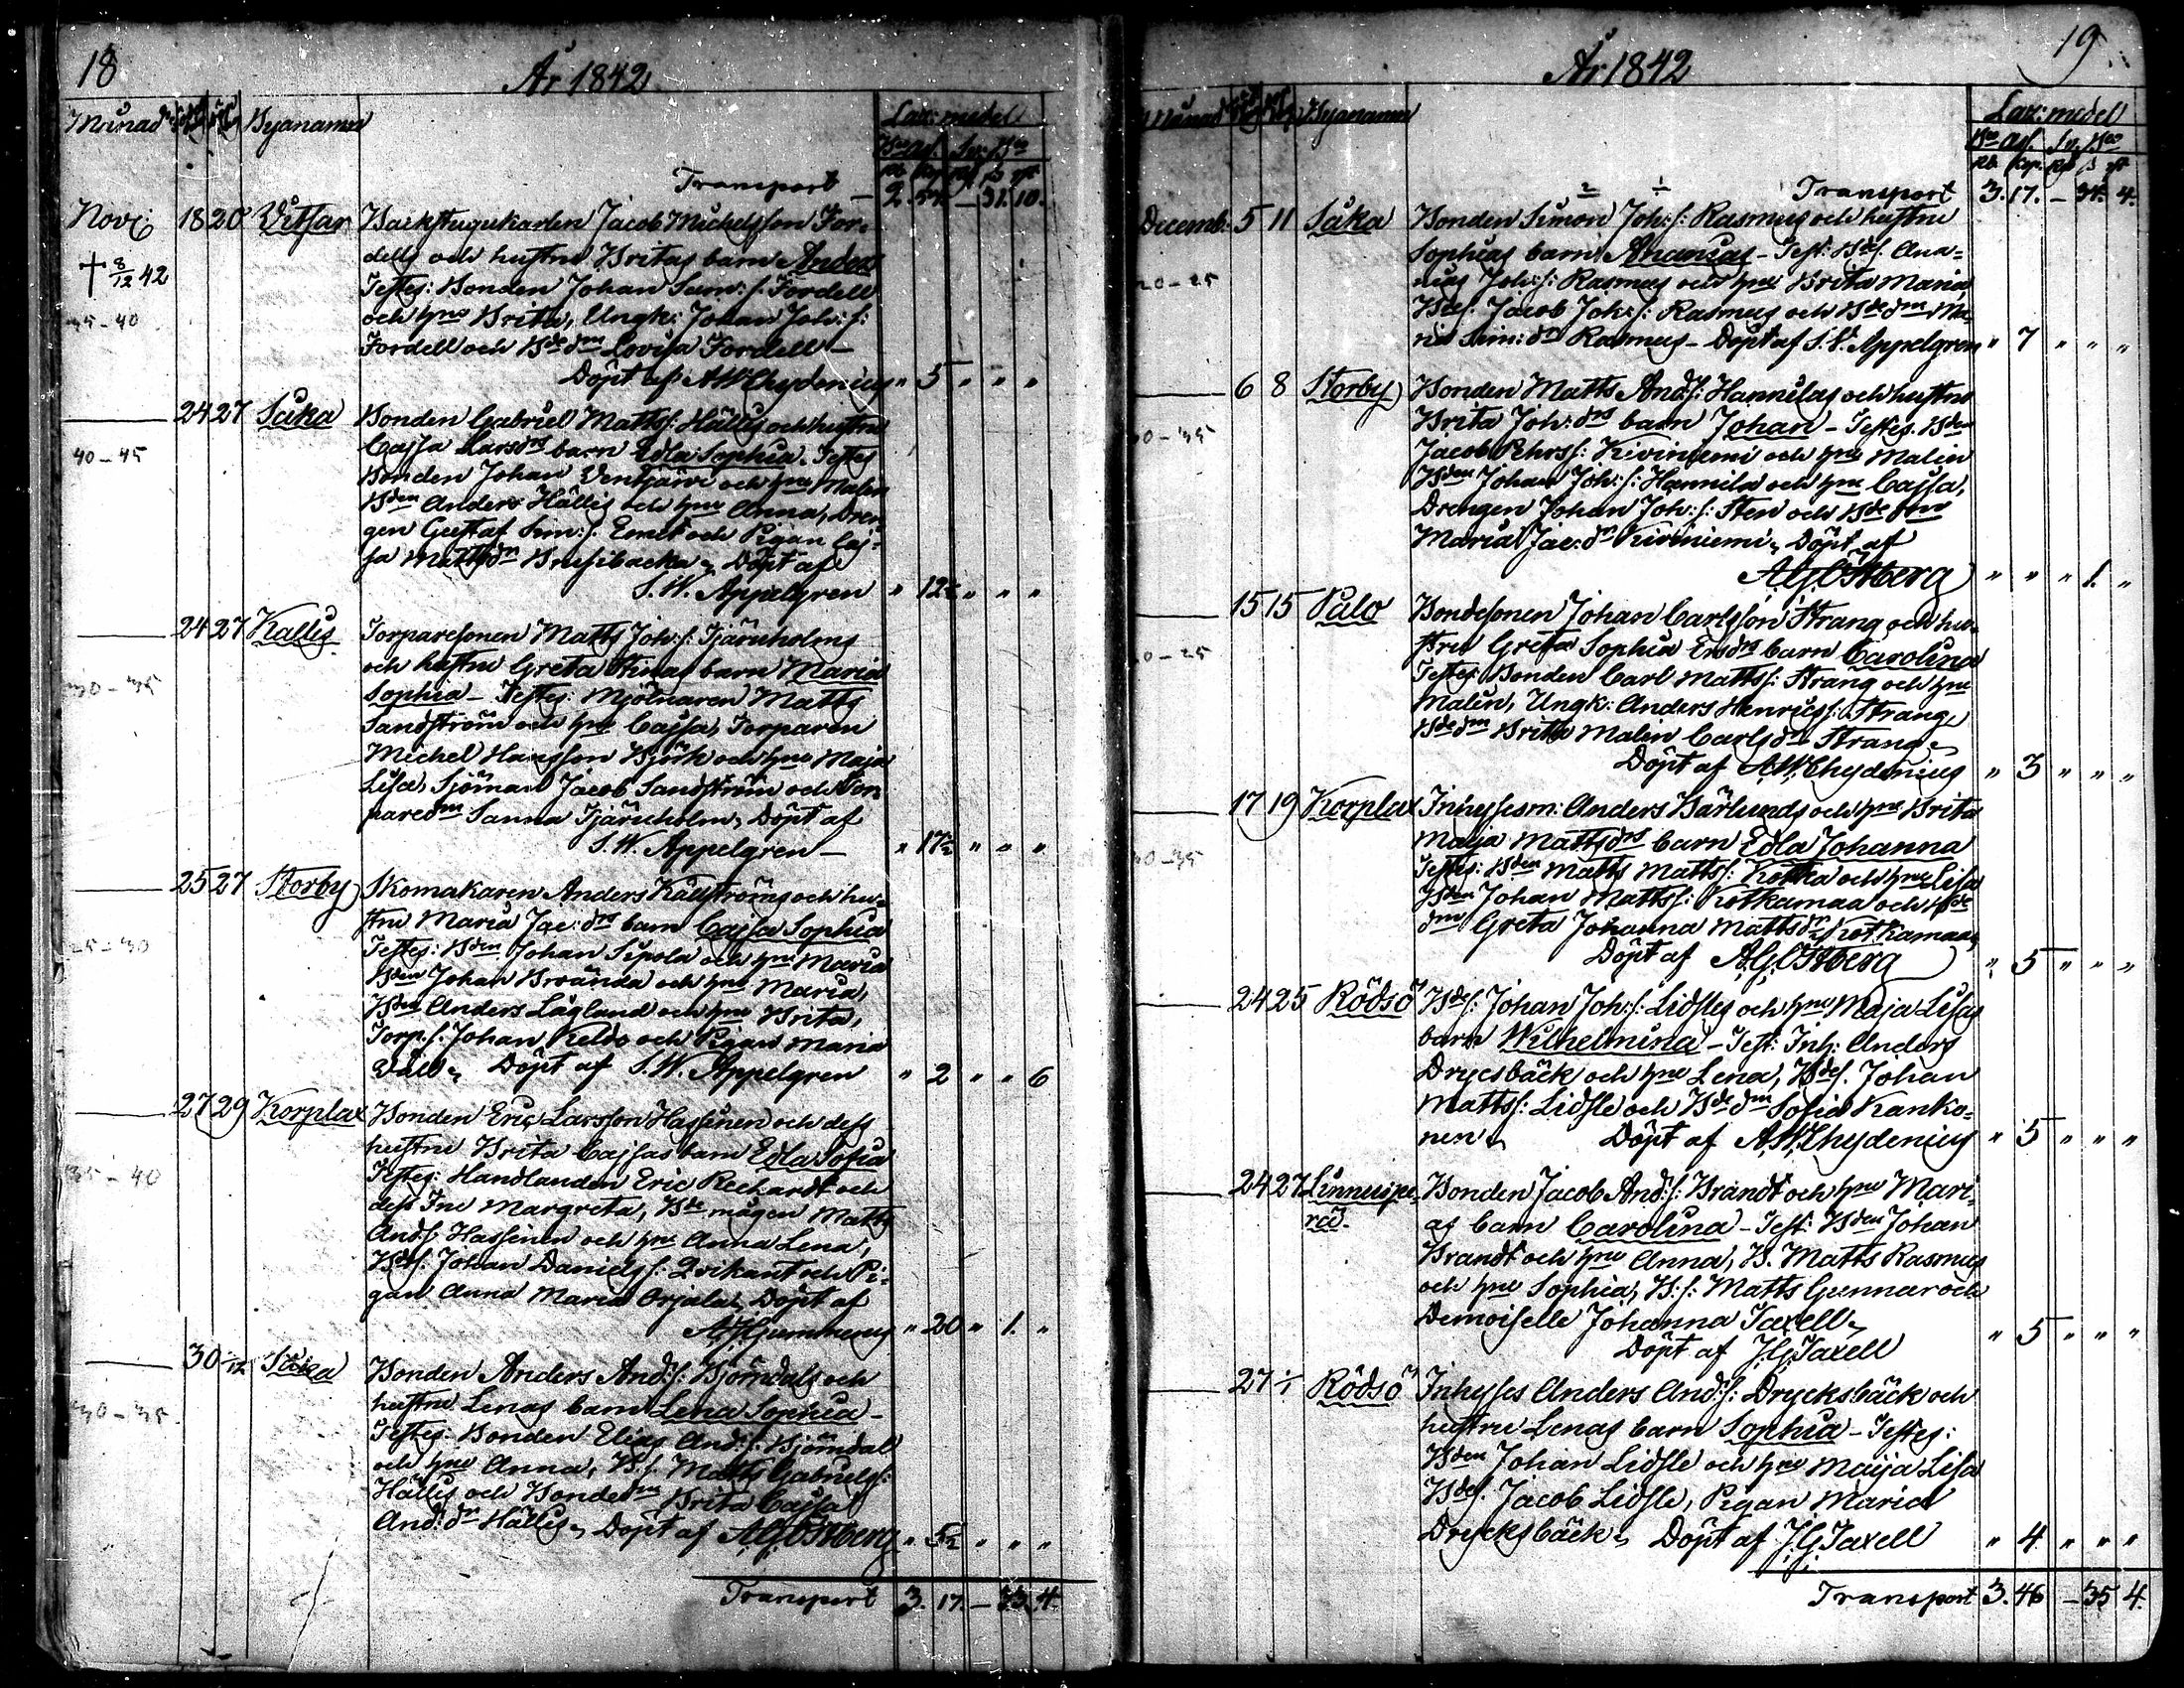 18
År 1842
Månad Byanamn Laz: medel
Bco Ass. Sv: Bco
Rb Kop Rd ß rst
Transport — 2. 54. — 31. 10.
Nov: 18 20 Vitsar Backstugukarlen Jacob Michelsson For-
dells och hustru Britas barn Anders
† 8/12 42
Testes: Bonden Johan Sam: s: Fordell
35-40
och hns Brita, Ungk: Johan Joh: s:
Fordell och Bde dm Lovisa Fordell —
Döpt af A W Chydenius " 5 " " "
24 27 Såka Bonden Gabriel Matts s: Hällis och hustru
40-45
Cajsa Larsdrs barn Edla Sophia. Testes
Bonden Johan Ventjärvi och hns Malin
Bden Anders Hällis och hns Anna, Dren-
gen Gustaf Sim: s: Emet och Pigan Caj-
sa Mattsdr Brusibacka. Döpt af
S. W. Appelgren " 12½ " " "
24 27 Kallis Torparesonen Matts Joh: s: Tjäruholms
och hustru Greta Stinas barn Maria
30-35
Sophia — Testes: Mjölnaren Matts
Sandström och hns Cajsa, Torparen
Michel Hansson Björk och hns Maja
Lisa, Sjöman Jacob Sandström och Tor-
paredm Sanna Tjäruholm, Döpt af
S. W. Appelgren — " 17½ " " "
25 27 Storby Skomakaren Anders Källströms och hu-
stru Maria Jac: drs barn Cajsa Sophia
25-30
Testes: Bden Johan Sipola och hns Maria
Bden Johan Brända och hns Maria,
Bden Anders Lågland och hns Brita,
Torp. s. Johan Keldo och Pigan Maria
Döpt af S. W. Appelgren " 2 " " 6
27 29 Korplax Bonden Eric Larsson Hassinen och dess
hustru Brita Cajsas barn Edla Sofia
35-40
Testes: Handlanden Eric Rechardt och
dess Fru Margreta, Bde mågen Matts
And s. Hassinen och hns Anna Lena,
Bdes: Johan Daniels s: Qvikant och Pi-
gan Anna Maria Orjala, Döpt af
A J Gummerus " 20 " 1. "
30 /12 Såka Bonden Anders And: s: Björndals och
hustru Lenas barn Lena Sophia —
30-35
Testes. Bonden Elias And: s: Björndal
och hns Anna, B. s. Matts Gabriels s:
Hällis och Bondedm Brita Cajsa
And: dr Hällis, Döpt af A. G. Östberg " 5½ " " "
Transport 3. 17. — 4.
19
År 1842
Månad Byanamn Laz: medel
Bco Ass. Sv. Bco
Rb Kop. Rd ß rst
Transport 3. 17. — 34. 4.
2 1
Decemb: 5 11 Såka Bonden Simon Joh: s: Rasmus och hustru
Sophias barn Ananias — Test: Bdes. Ana-
20-25
nias Joh: s: Rasmus och hns Brita Maria
Bdes. Jacob Joh: s: Rasmus och Bde dm Ma-
ria Sim: dr Rasmus — Döpt af S. W. Appelgren " 7 " " "
6 8 Storby Bonden Matts And: s: Hannilas och hustru
30-35
Brita Joh: drs barn Johan — Testes. Bden
Jacob Pehrs s: Kiviniemi och hns Malin
Bden Johan Joh: s: Hannila och hns Cajsa,
Drengen Johan Joh: s: Sten och Bde dm
Maria Jac: dr Kiviniemi, Döpt af
A G Östberg " " " 1. "
15 15 Palo Bondesonen Johan Carlsson Strang och hu-
20-25
stru Greta Sophia Ersdrs barn Carolina
Testes: Bonden Carl Matts s: Strang och hns
Malin, Ungk: Anders Henrics s: Strang,
Bde dm Brita Malin Carlsdr Strang,
Döpt af A W Chydenius " 3 " " "
17 19 Korplax Inhysesm: Anders Bärlunds och hns Brita
30-35
Maija Mattsdrs barn Edla Johanna
Testes: Bden Matts Matts s: Kotka och hns Lisa
Bden Johan Matts s: Kotkamaa och Bde
dm Greta Johanna Mattsdr Kotkamaa,
Döpt af A G Östberg " 5 " " "
24 25 Rödsö Bdes: Johan Joh: s: Lidsles och hns Maja Lisas
barn Wilhelmina — Test: Inh: Anders
Drycsbäck och hns Lena, Bdes. Johan
Matts s: Lidsle och Bde dm Sofia Kanko-
nen, Döpt af A W Chydenius " 5 " " "
24 27 Linnuspe- Bonden Jacob And: s: Brandt och hns Mari-
rä. as barn Carolina — Test: Bden Johan
Brandt och hns Anna, B. Matts Rasmus
och hns Sophia, B: s: Matts Gunnar och
Demoiselle Johanna Taxell,
Döpt af J G Taxell " 5 " " "
27 1/1 Rödsö Inhyses Anders And: s: Drycksbäck och
hustru Lenas barn Sophia — Testes:
Bden Johan Lidsle och hns Maija Lisa
Bdes. Jacob Lidsle, Pigan Maria
Drycksbäck, Döpt af J G Taxell " 4 " " "
Transport 3. 46 — 35 4.